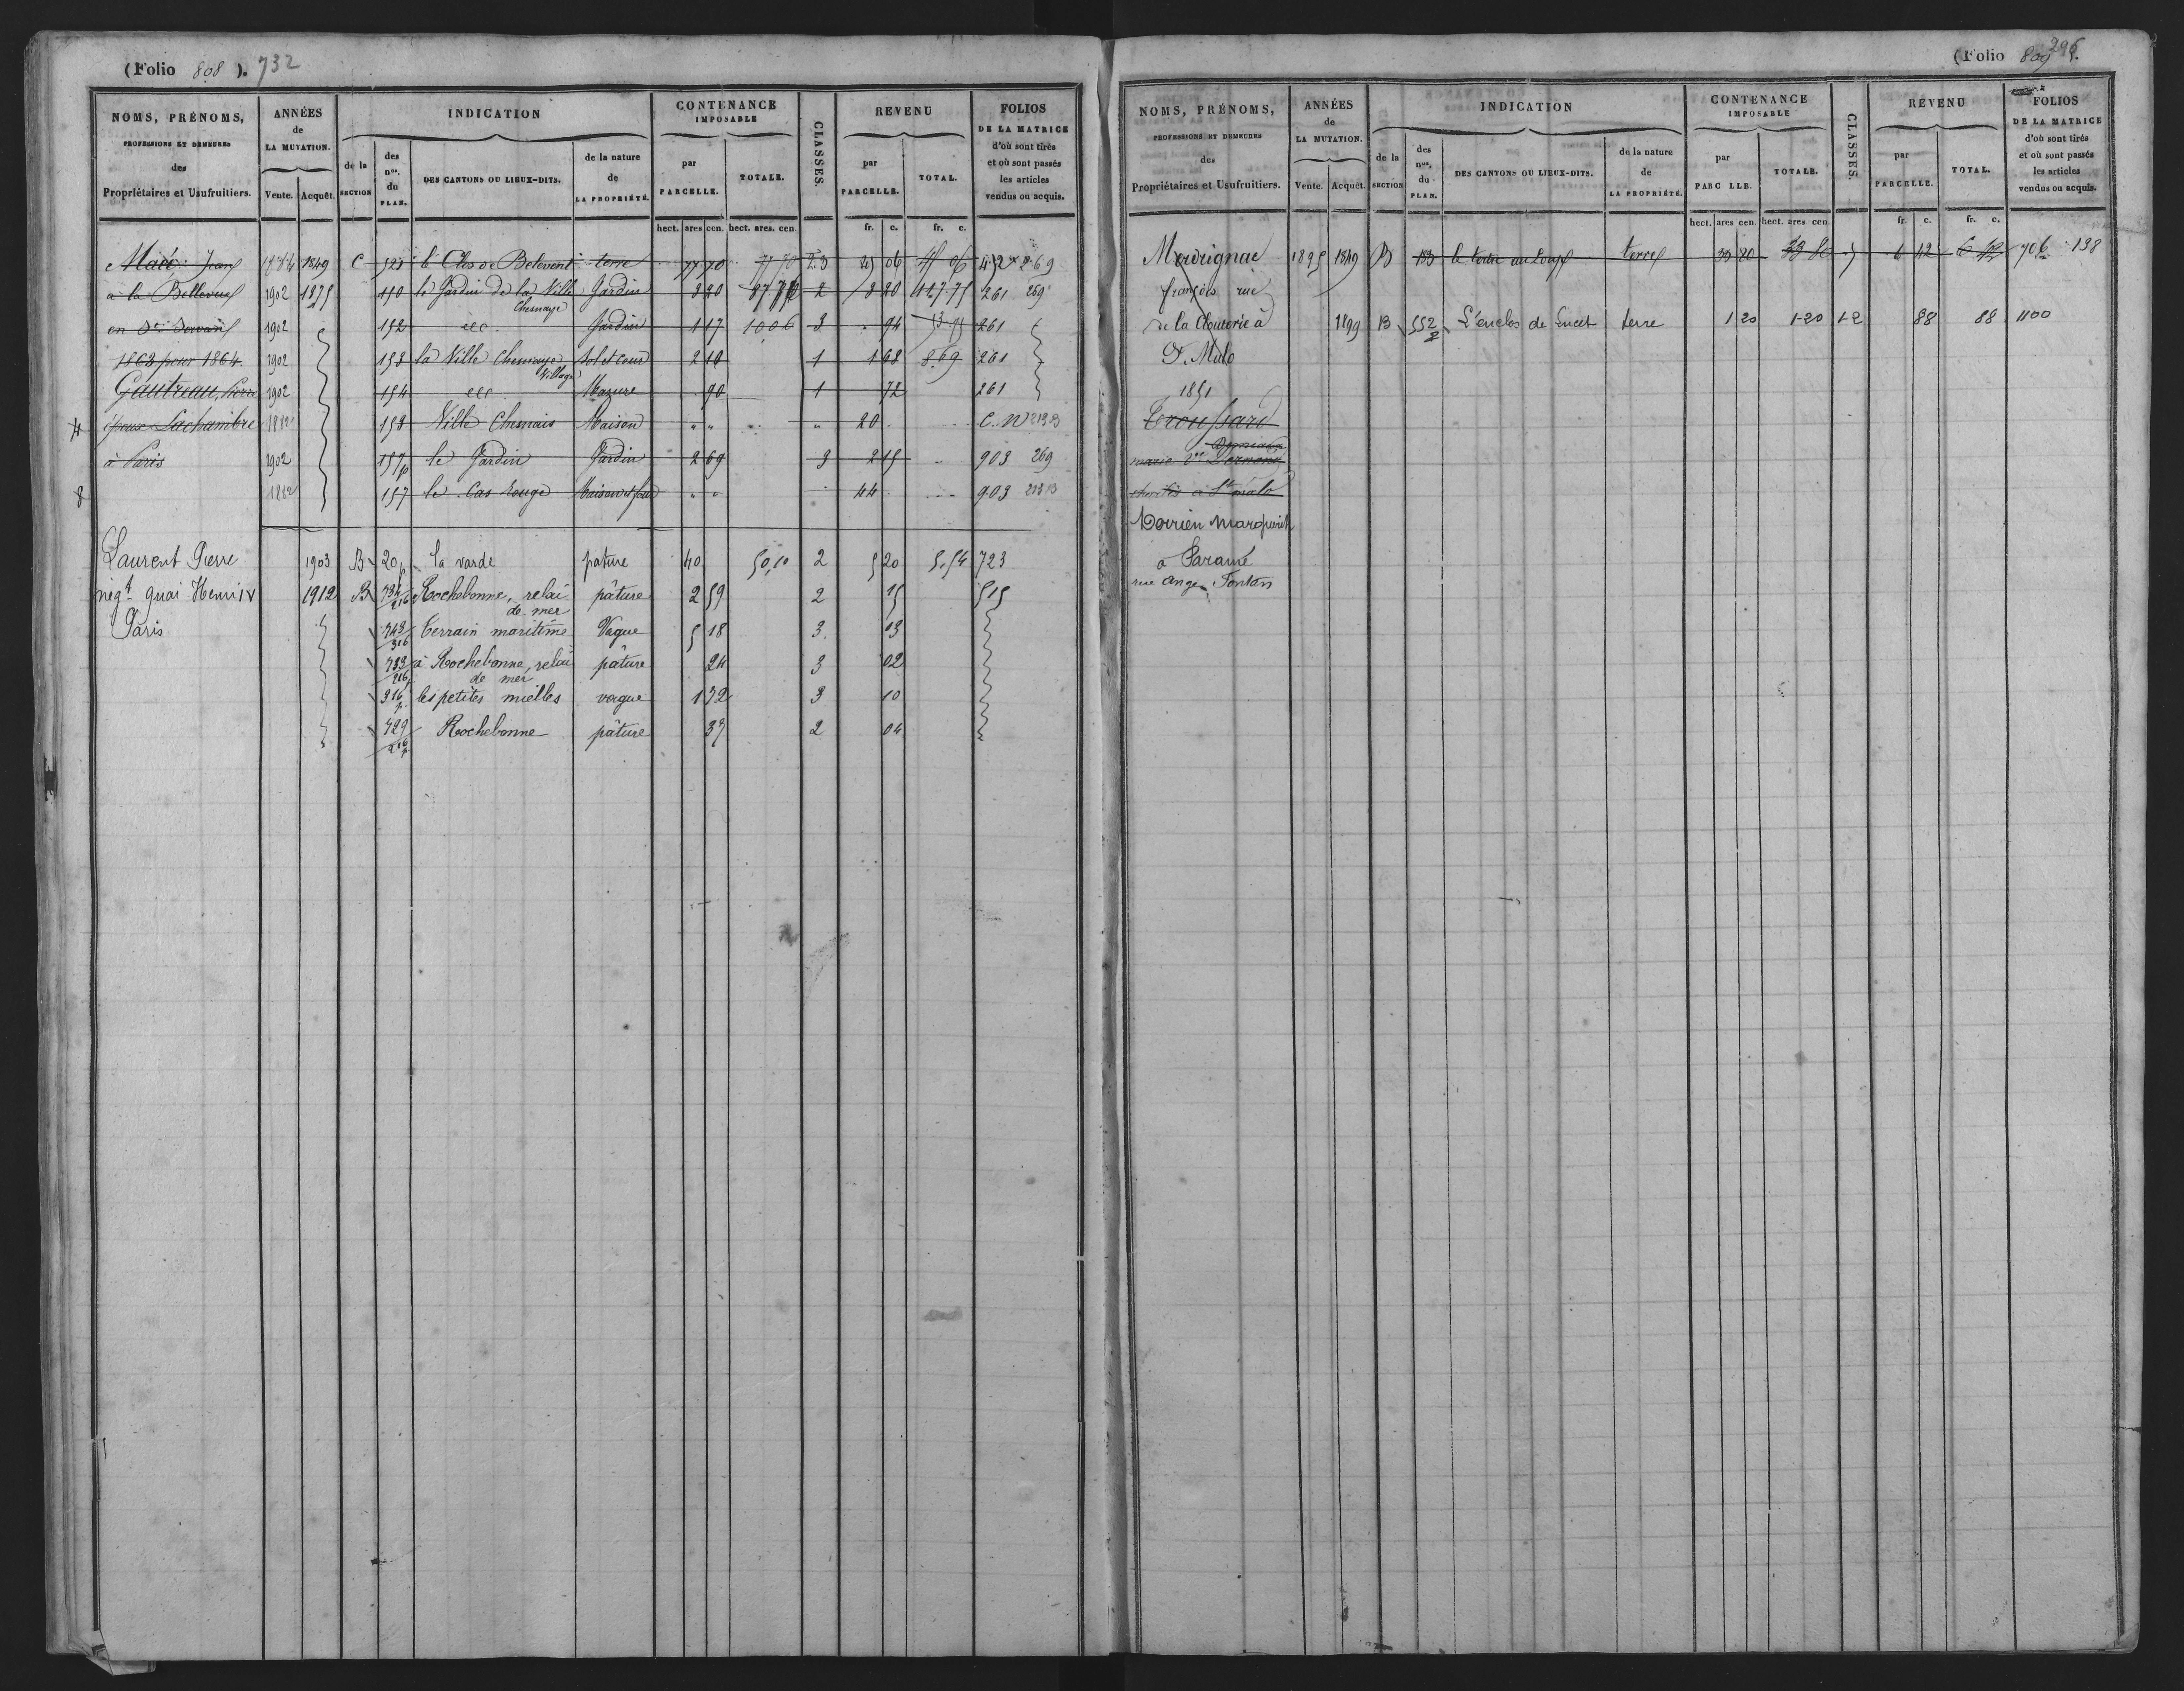 (Folio 808). 732
NOMS, PRÉNOMS,
PROFESSIONS ET DEMEURES
des
Propriétaires et Usufruitiers.
ANNÉES
de
LA MUTATION.
Vente. Acquêt.
INDICATION
de la
SECTION
des
nos.
du
PLAN.
DES CANTONS OU LIEUX-DITS.
de la nature
de
LA PROPRIÉTÉ.
CONTENANCE
IMPOSABLE
par
PARCELLE.
TOTALE.
CLASSES.
REVENU
par
PARCELLE.
TOTAL.
FOLIOS
DE LA MATRICE
d'où sont tirés
et où sont passés
les articles
vendus ou acquis.
hect. ares cen. hect. ares. cen. fr. c. fr. c.
Macé Jean 1849 C 523 le Clos de Belevent terre 77 70 77 70 2.3 45 06 269
à la Bellevue 1902 1875 150 le Jardin de la Ville Chesnaye Jardin 3 20 2 3 20 261 269
en St Servan 1902 152 Jardin 1 17 10 06 3 94 261
1863 pour 1864. 1902 153 la Ville Chesnaye Village Sol et cour 2 10 1 1 68 8.69 261
Gautreau, Pierre 1902 154 Mazure 90 1 72 261
époux Lachambre 153 Ville Chesnais Maison " " " 20 C.N
à Paris 1902 157p le Jardin Jardin 2 69 3 2 15 903 269
157 le Cas Rouge Maison " " 44 903
Laurent Pierre 1903 B 20p la varde pature 40 50,10 2 5 20 5,54 723
négt quai Henri IV 1912 B 734/216 Rochebonne, relai de mer pâture 2 59 2 15 515
Paris 743/316 terrain maritime Vague 5 18 3 03
733/216 à Rochebonne, relai de mer pâture 24 3 02
316p. les petites mielles vague 1 72 3 10
729/216p Rochebonne pâture 37 2 04
(Folio 809). 296
NOMS, PRÉNOMS,
PROFESSIONS ET DEMEURES
des
Propriétaires et Usufruitiers.
ANNÉES
de
LA MUTATION.
Vente. Acquêt.
INDICATION
de la
SECTION
des
nos.
du
PLAN.
DES CANTONS OU LIEUX-DITS.
de la nature
de
LA PROPRIÉTÉ.
CONTENANCE
IMPOSABLE
par
PARC LLE.
TOTALE.
CLASSES.
REVENU
par
PARCELLE.
TOTAL.
FOLIOS
DE LA MATRICE
d'où sont tirés
et où sont passés
les articles
vendus ou acquis.
hect. ares cen. hect. ares cen. fr. c. fr. c.
Merdrignac 1895 1849 B 133 le tertre au Loup terre 33 80 33 80 6 42 6 42 706 138
françois rue
de la Clouterie à 1899 B 552p L'enclos de Lucet terre 1 20 1.20 1-2 88 88 1100
St Malo
1851
Troussard
marie Vve
à St malo
Dorrien Marguerite
à Paramé
rue Ange Fontan